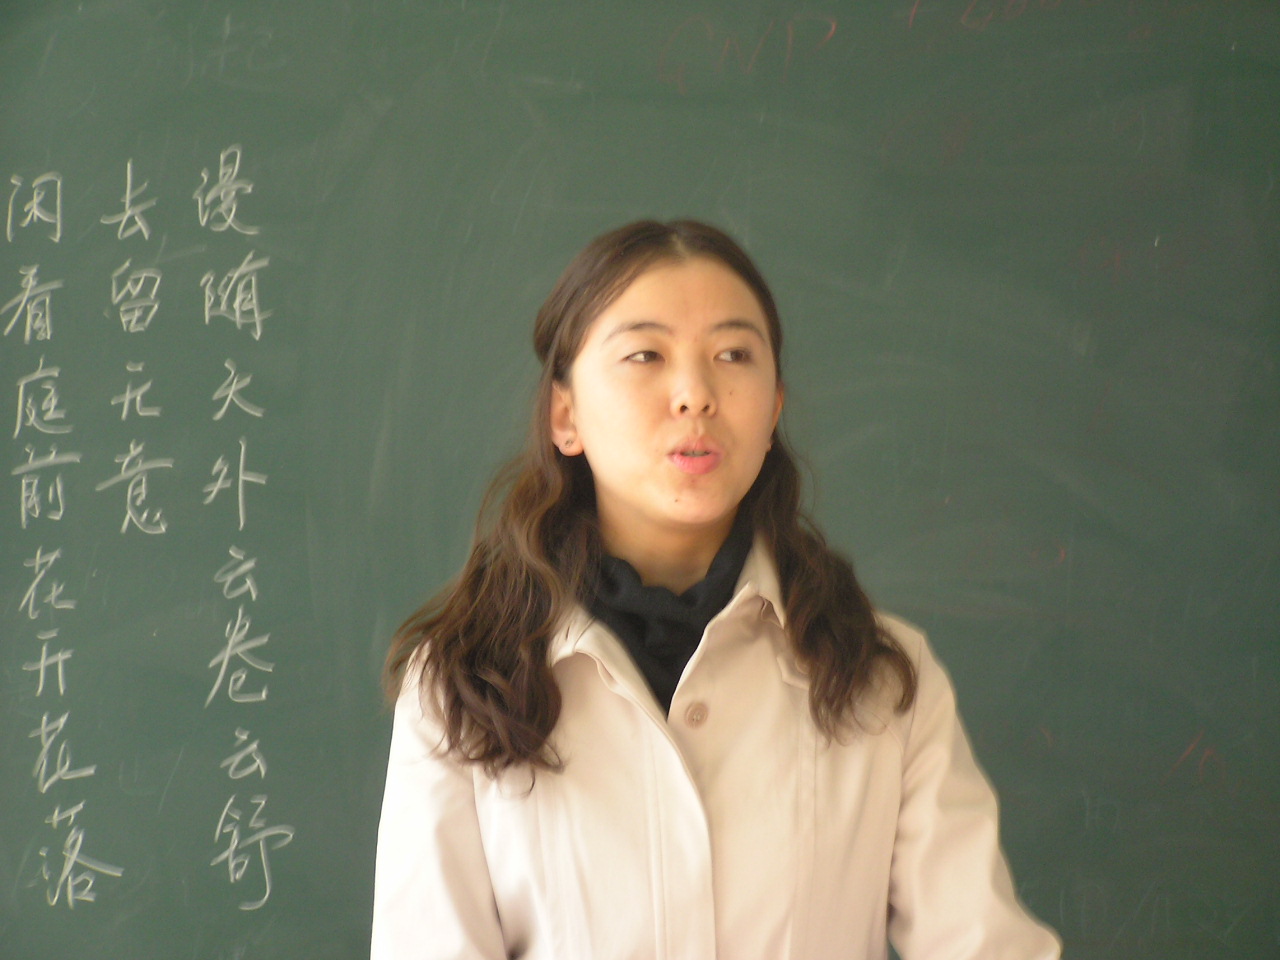 漫随天外云卷云舒
去留无意
闲看庭前花开花落
GNP